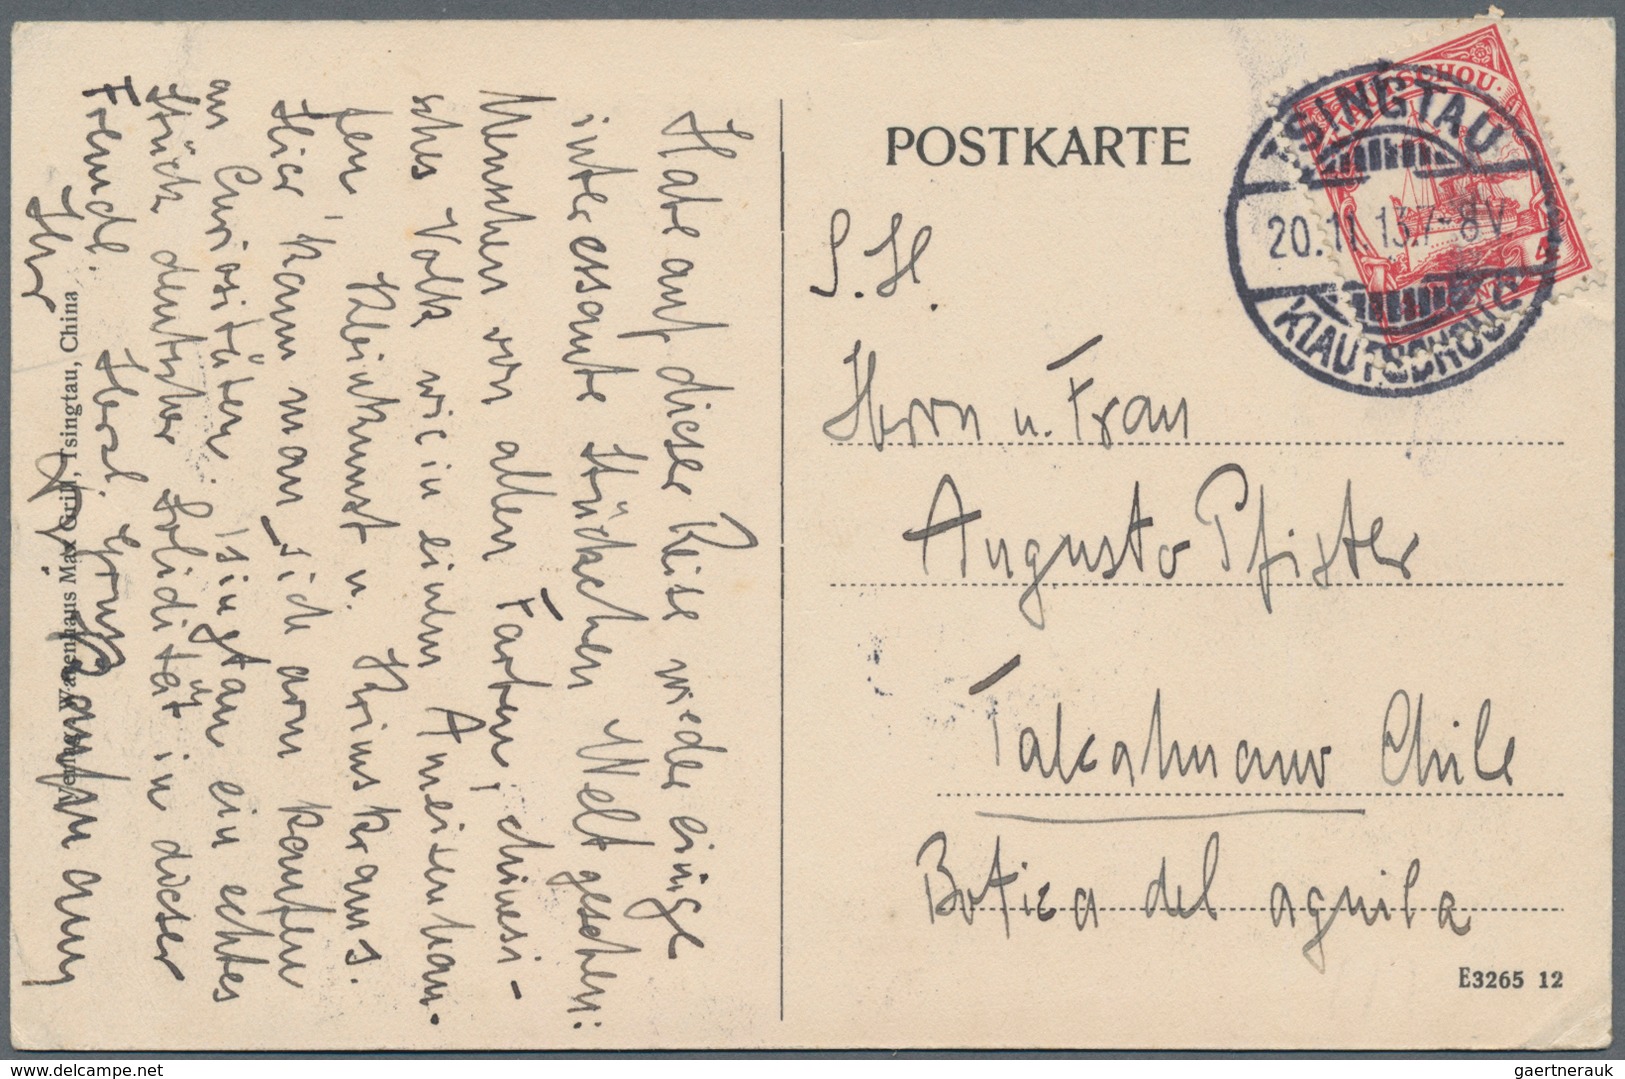 POSTKARTE
TSINGTAU
20.11.13.7-8V.
KIAUTSCHOU
SCHOU.
S. H.
Herrn u. Frau
Augusto Pfister
Talcahuano Chile
Botica del aguila
E3265 12
Habe auf dieser Reise wieder einige
interessante Stückchen Welt gesehen:
Menschen von allen Farben, chinesi-
sches Volk wie in einem Ameisenhau-
fen, Kleinkunst u. Krimskrams.
Hier kann man sich arm kaufen
an Curiositäten. Tsingtau ein echtes
Stück deutscher Solidität in dieser
Fremde. Herzl. Gruss
Ihr
Verlag: Waisenhaus Max Grill, Tsingtau, China
delcampe.net
gaertnerauk